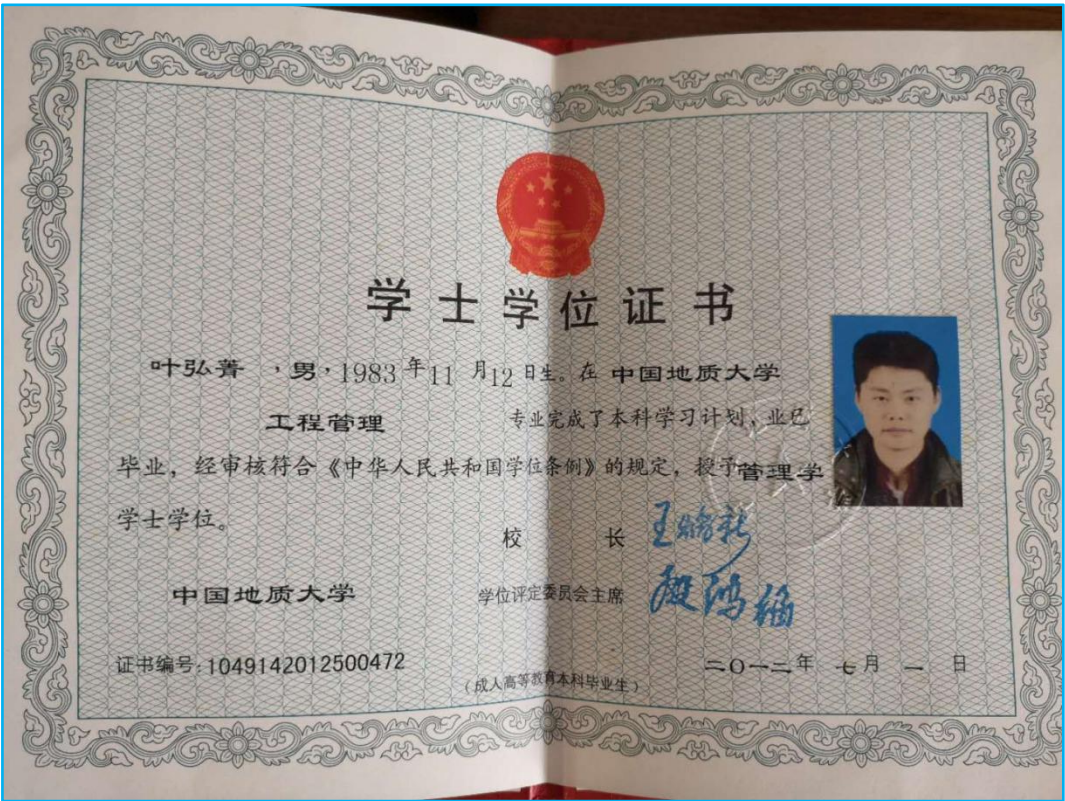 学士学位证书
叶弘菁，男，1983年11月12日生。在中国地质大学
工程管理 专业完成了本科学习计划，业已
毕业，经审核符合《中华人民共和国学位条例》的规定，授予管理学
学士学位。
校长 王焰新
中国地质大学 学位评定委员会主席 殷鸿福
证书编号：1049142012500472 二〇一二年 七月 一 日
（成人高等教育本科毕业生）